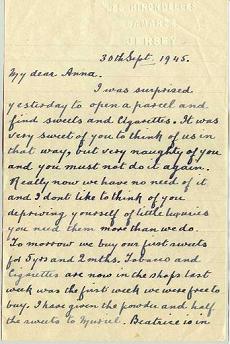 LES HIRONDELLES
SAMARES
JERSEY
30th Sept. 1945.
My dear Anna.
I was surprised
yesterday to open a parcel and
find sweets and Cigarettes. It was
very sweet of you to think of us in
that way, but very naughty of you
and you must not do it again.
Really now we have no need of it
and I dont like to think of you
depriving yourself of little luxuries
you need them more than we do.
To morrow we buy our first sweets
for 5 yrs and 2 mths. Tobacco and
Cigarettes are now in the shops last
week was the first week we were free to
buy. I have given the powder and half
the sweets to Muriel. Beatrice is in